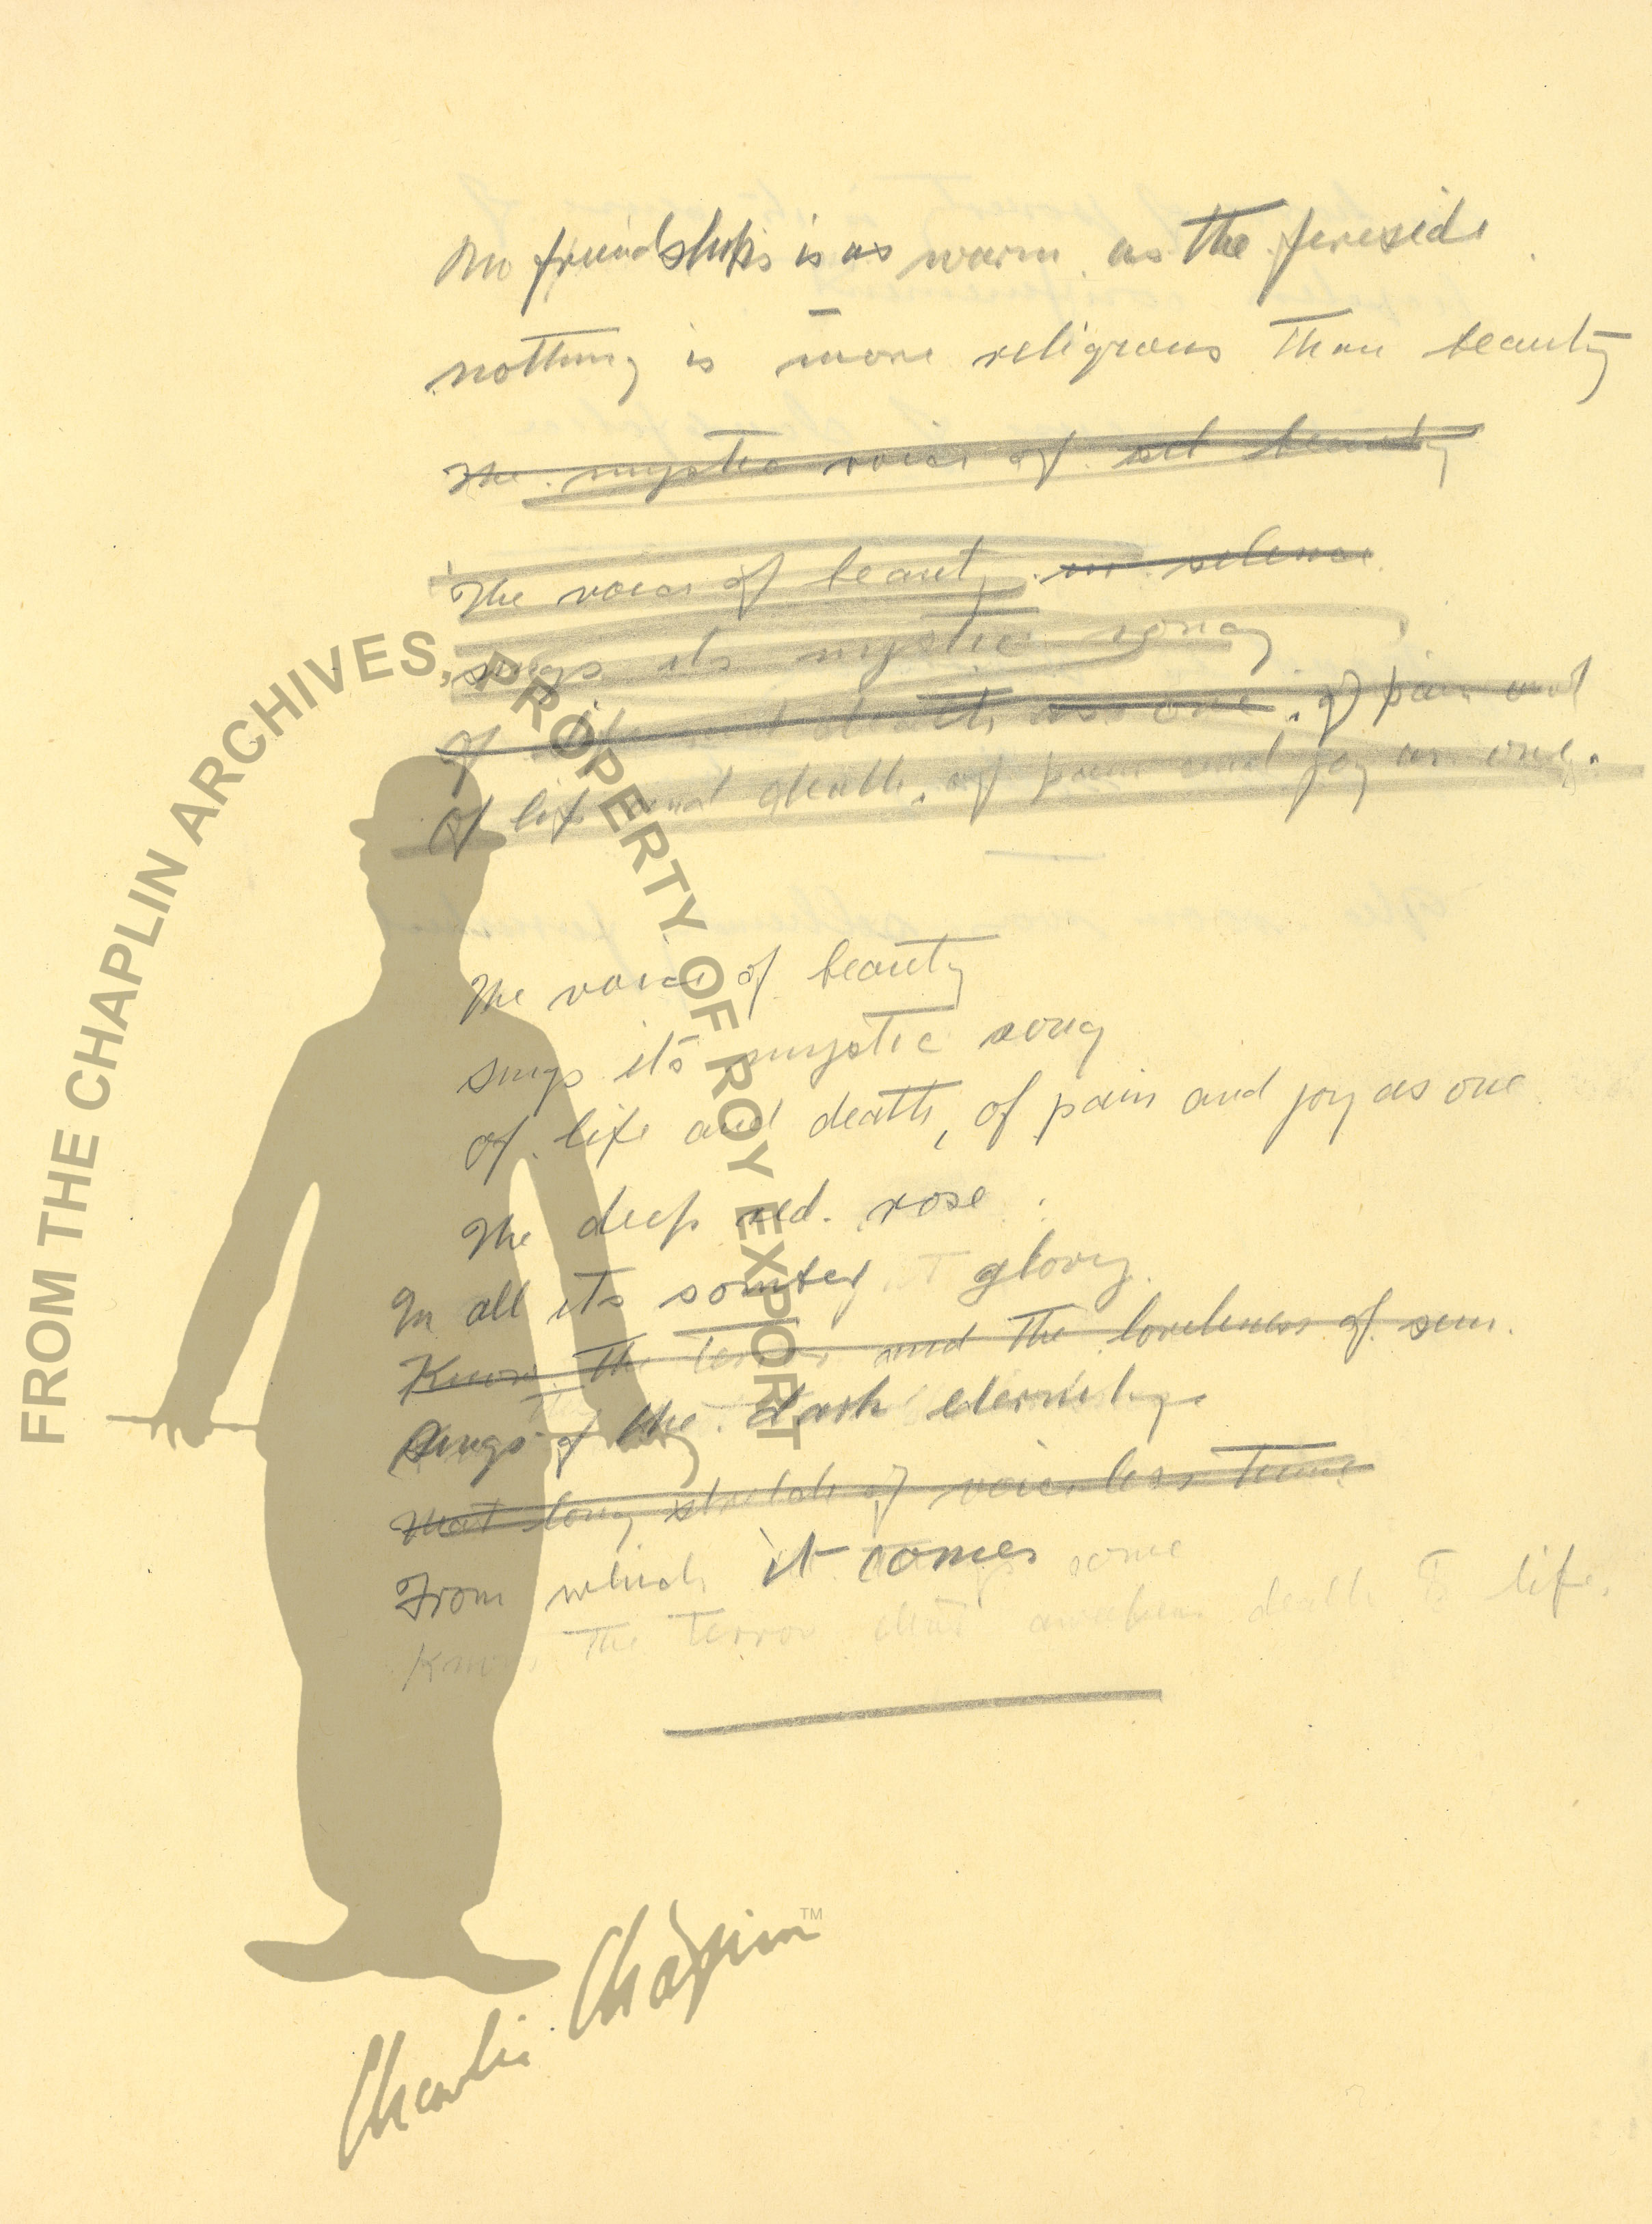 No friendships is as warm as the fireside
nothing is more religious than beauty
The mystic voice of all beauty
The voice of beauty in silence
sings its mystic song
Of life and death as one, of pain and
Of life and death, of pain and joy as one.
The voice of beauty
sings its mystic song
of life and death, of pain and joy as one
The deep red rose
In all its somber glory
Knows the terror and the loveliness of
Sings of the dark eternity
that long stretch of voiceless time
From which it comes
Knows the terror that awakens death to life.
FROM THE CHAPLIN ARCHIVES, PROPERTY OF ROY EXPORT
Charlie Chaplin TM